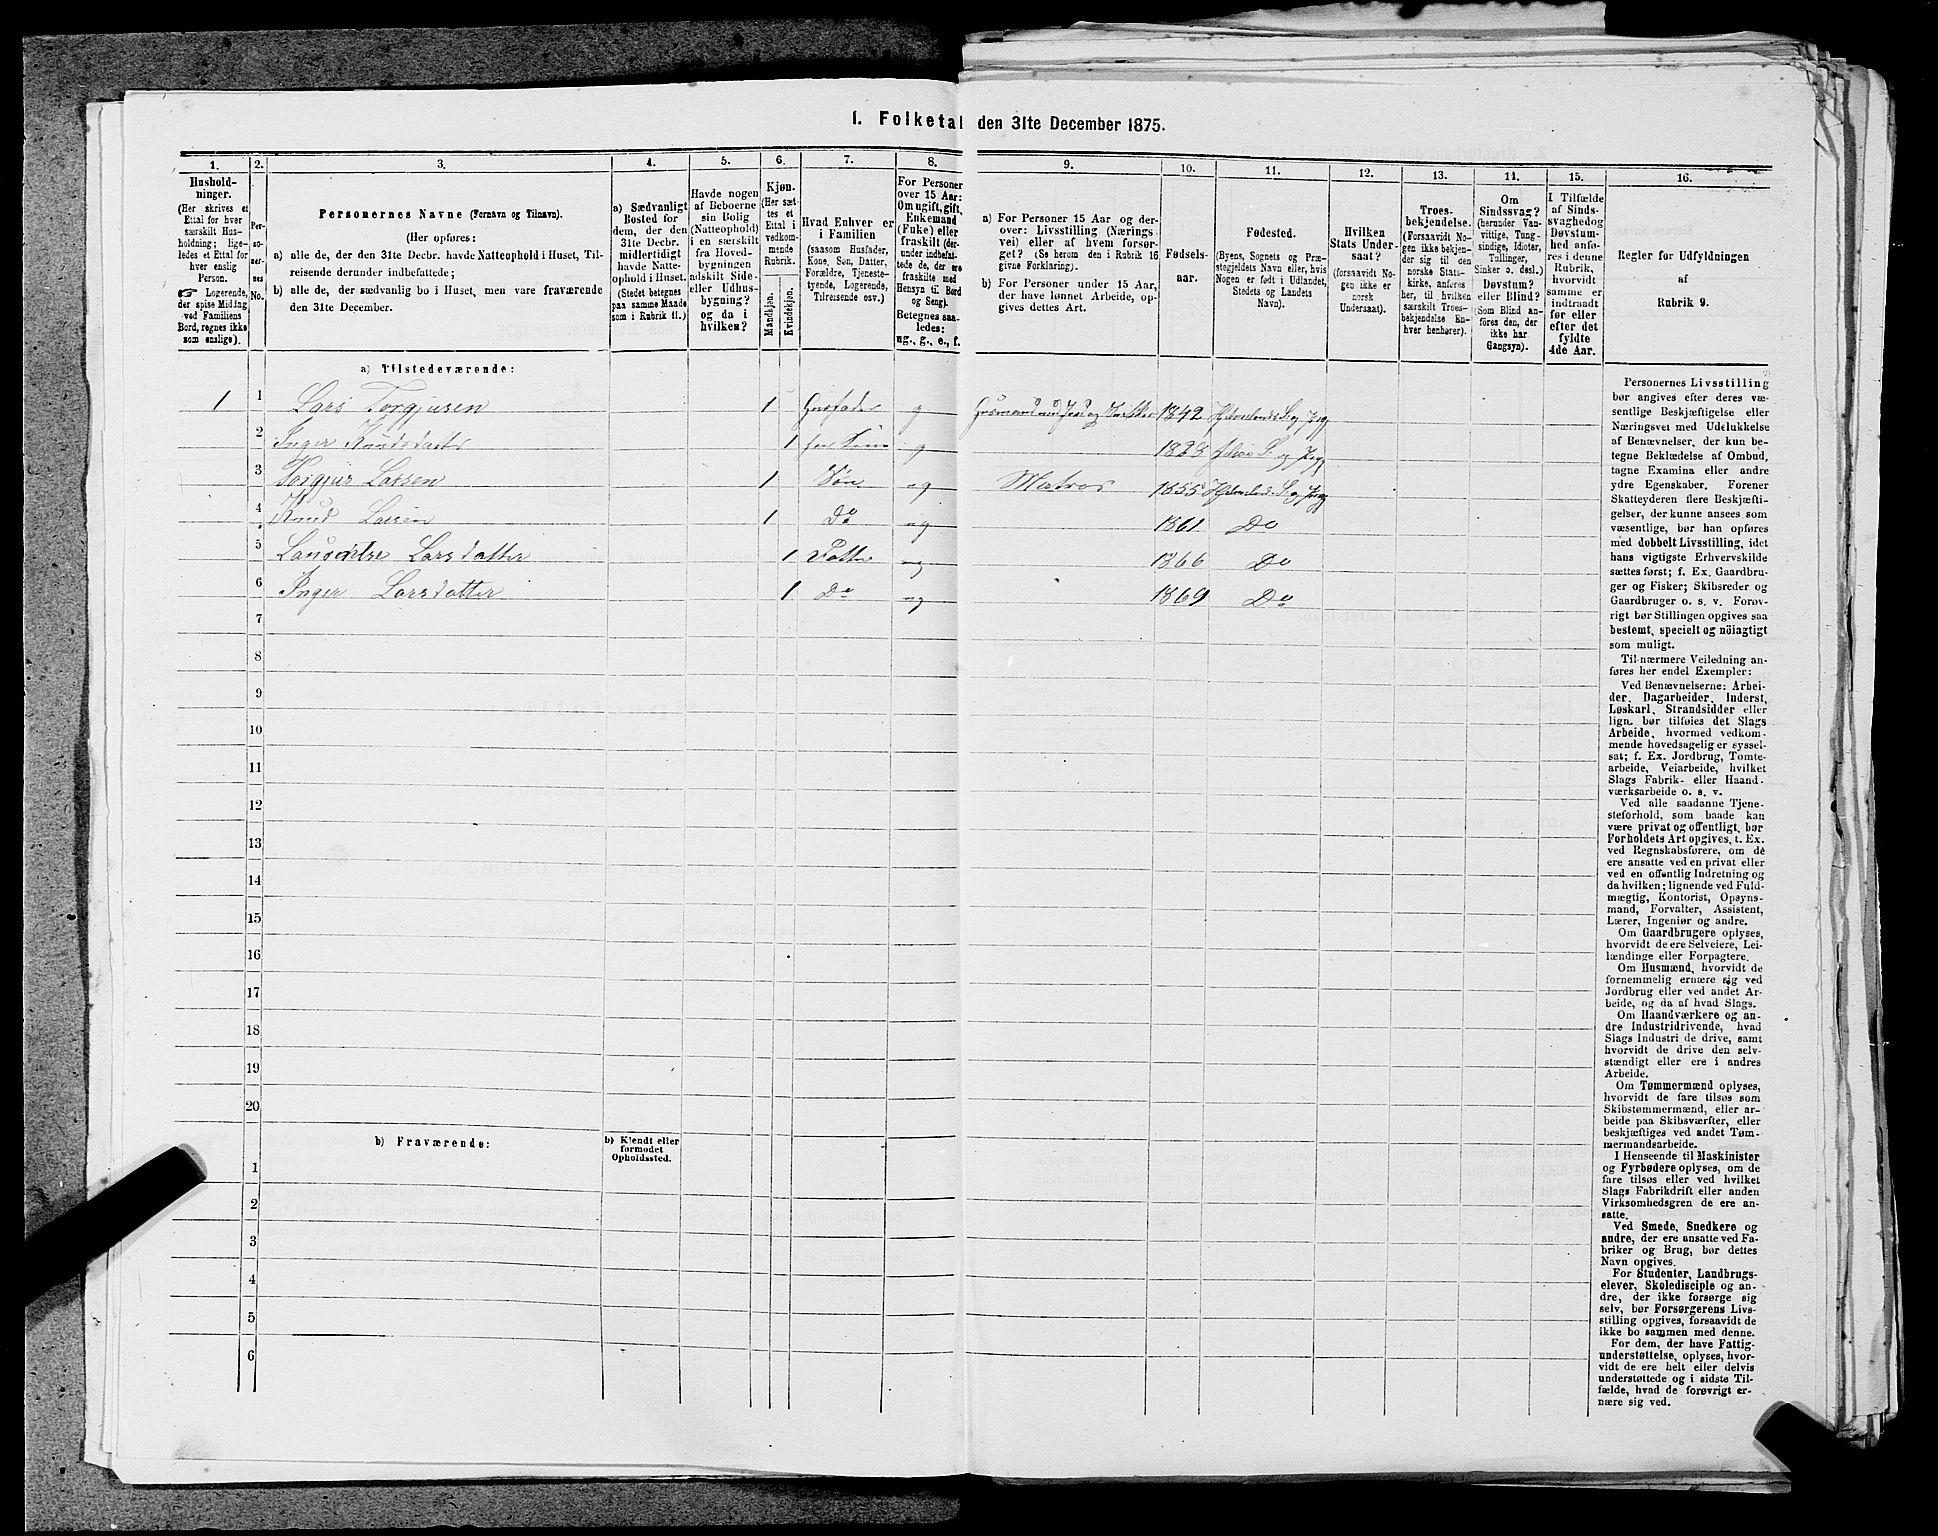 1. Folketal den 31te December 1875.
1. 2. 3. 4. 5. 6. 7. 8. 9. 10. 11. 12. 13. 14. 15. 16.
Hushold-
ninger.
(Her skrives et
Ettal for hver
særskilt Hus-
holdning; lige-
ledes et Ettal for
hver enslig
Person.
☞ Logerende,
der spise Middag
ved Familiens
Bord, regnes ikke
som enslige).
Per-
so-
ner-
nes
No.
Personernes Navne (Fornavn og Tilnavn).
(Her opføres:
a) alle de, der den 31te Decbr. havde Natteophold i Huset, Til-
reisende derunder indbefattede;
b) alle de, der sædvanlig bo i Huset, men vare fraværende
den 31te December.
a) Sædvanligt
Bosted for
dem, der den
31te Decbr.
midlertidigt
havde Natte-
ophold i Huset.
(Stedet betegnes
paa samme Maade
som i Rubrik 11.)
Havde nogen
af Beboerne
sin Bolig
(Natteophold)
i en særskilt
fra Hoved-
bygningen
adskilt Side-
eller Udhus-
bygning?
og da i
hvilken?
Kjøn.
(Her sæt-
tes et
Ettal i
vedkom-
mende
Rubrik.
Mandkjøn.
Kvindekjøn.
Hvad Enhver er
i Familien
(saasom Husfader,
Kone, Søn, Datter,
Forældre, Tjeneste-
tyende, Logerende,
Tilreisende osv.)
For Personer
over 15 Aar:
Om ugift, gift,
Enkemand
(Enke) eller
fraskilt (der-
under indbefat-
tede de, der ere
fraskilte med
Hensyn til Bord
og Seng).
Betegnes saa-
ledes:
ug., g., e., f.
a) For Personer 15 Aar og der-
over: Livsstilling (Nærings-
vei) eller af hvem forsør-
get? (Se herom den i Rubrik 16
givne Forklaring).
b) For Personer under 15 Aar,
der have lønnet Arbeide, op-
gives dettes Art.
Fødsels-
aar.
Fødested.
(Byens, Sognets og Præ-
stegjeldets Navn eller, hvis
Nogen er født i Udlandet,
Stedets og Landets
Navn).
Hvilken
Stats Under-
saat?
(forsaavidt No-
gen ikke er
norsk
Undersaat).
Troes-
bekjendelse.
(Forsaavidt No-
gen ikke bekjen-
der sig til den
norske Stats-
kirke, anføres
her, til hvilken
særskilt Troes-
bekjendelse En-
hver henhører).
Om
Sindssvag?
(herunder Van-
vittige, Tung-
sindige, Idioter,
Tullinger,
Sinker o. desl.)
Døvstum?
eller Blind?
(Som Blind an-
føres den, der
ikke har
Gangsyn).
I Tilfælde
af Sinds-
svaghed og
Døvstum-
hed anfø-
res i denne
Rubrik,
hvorvidt
samme er
indtraadt
før eller
efter det
fyldte
4de Aar.
Regler for Udfyldningen
af
Rubrik 9.
a) Tilstedeværende:
1 1 Lars Torgjusen 1 Husfader g 1842
2 Inger Knudsdatter 1 g
3 Torgjus Larsen 1 Søn ug Matros 1855
4 Knud Larsen 1 Do ug 1861 Do
5 Larsdatter 1 Datter ug 1866 Do
6 Inger Larsdatter 1 Do ug 1869 Do
7
8
9
10
11
12
13
14
15
16
17
18
19
20
b) Fraværende:
b) Kjendt eller
formodet
Opholdssted.
1
2
3
4
5
6
Personernes Livsstilling
bør angives efter deres væ-
sentlige Beskjæftigelse eller
Næringsvei med Udelukkelse
af Benævnelser, der kun be-
tegne Beklædelse af Ombud,
tagne Examina eller andre
ydre Egenskaber. Forener
Skatteyderen flere Beskjæfti-
gelser, der kunne ansees som
væsentlige, bør han opføres
med dobbelt Livsstilling, idet
hans vigtigste Erhvervskilde
sættes først; f. Ex. Gaardbru-
ger og Fisker; Skibsreder og
Gaardbruger o. s. v. Forøv-
rigt bør Stillingen opgives saa
bestemt, specielt og nöiagtigt
som muligt.
Til nærmere Veiledning an-
føres her endel Exempler:
Ved Benævnelserne: Arbei-
der, Dagarbeider, Inderst,
Løskarl, Strandsidder eller
lign. bør tilføies det Slags
Arbeide, hvormed vedkom-
mende hovedsagelig er syssel-
sat; f. Ex. Jordbrug, Tomte-
arbeide, Veiarbeide, hvilket
Slags Fabrik- eller Haand-
værksarbeide o. s. v.
Ved alle saadanne Tjene-
steforhold, som baade kan
være privat og offentligt, bør
Forholdets Art opgives, t. Ex.
ved Regnskabsførere, om de
ere ansatte ved en privat eller
ved en offentlig Indretning og
da hvilken; lignende ved Fuld-
mægtig, Kontorist, Opsyns-
mand, Forvalter, Assistent,
Lærer, Ingeniør og andre.
Om Gaardbrugere oplyses,
hvorvidt de ere Selveiere, Lei-
lændinge eller Forpagtere.
Om Husmænd, hvorvidt de
fornemmelig ernære sig ved
Jordbrug eller ved andet Ar-
beide, og da af hvad Slags.
Om Haandværkere og an-
dre Industridrivende, hvad
Slags Industri de drive, samt
hvorvidt de drive den selv-
stændigt eller ere i andres
Arbeide.
Om Tømmermænd oplyses,
hvorvidt de fare tilsøs som
Skibstømmermænd, eller ar-
beide paa Skibsværfter, eller
beskjæftiges ved andet Tøm-
mermandsarbeide.
I Henseende til Maskinister
og Fyrbødere oplyses, om de
fare tilsøs eller ved hvilket
Slags Fabrikdrift eller anden
Virksomhedsgren de ere an-
satte.
Ved Smede, Snedkere og
andre, der ere ansatte ved Fa-
briker og Brug, bør dettes
Navn opgives.
For Studenter, Landbrugs-
elever, Skoledisciple og an-
dre, der ikke forsørge sig
selv, bør Forsørgerens Livs-
stilling opgives, forsaavidt de
ikke bo sammen med denne.
For dem, der have Fattig-
understøttelse, oplyses, hvor-
vidt de ere helt eller delvis
understøttede og i sidste Til-
fælde, hvad de forøvrigt er-
nære sig ved.